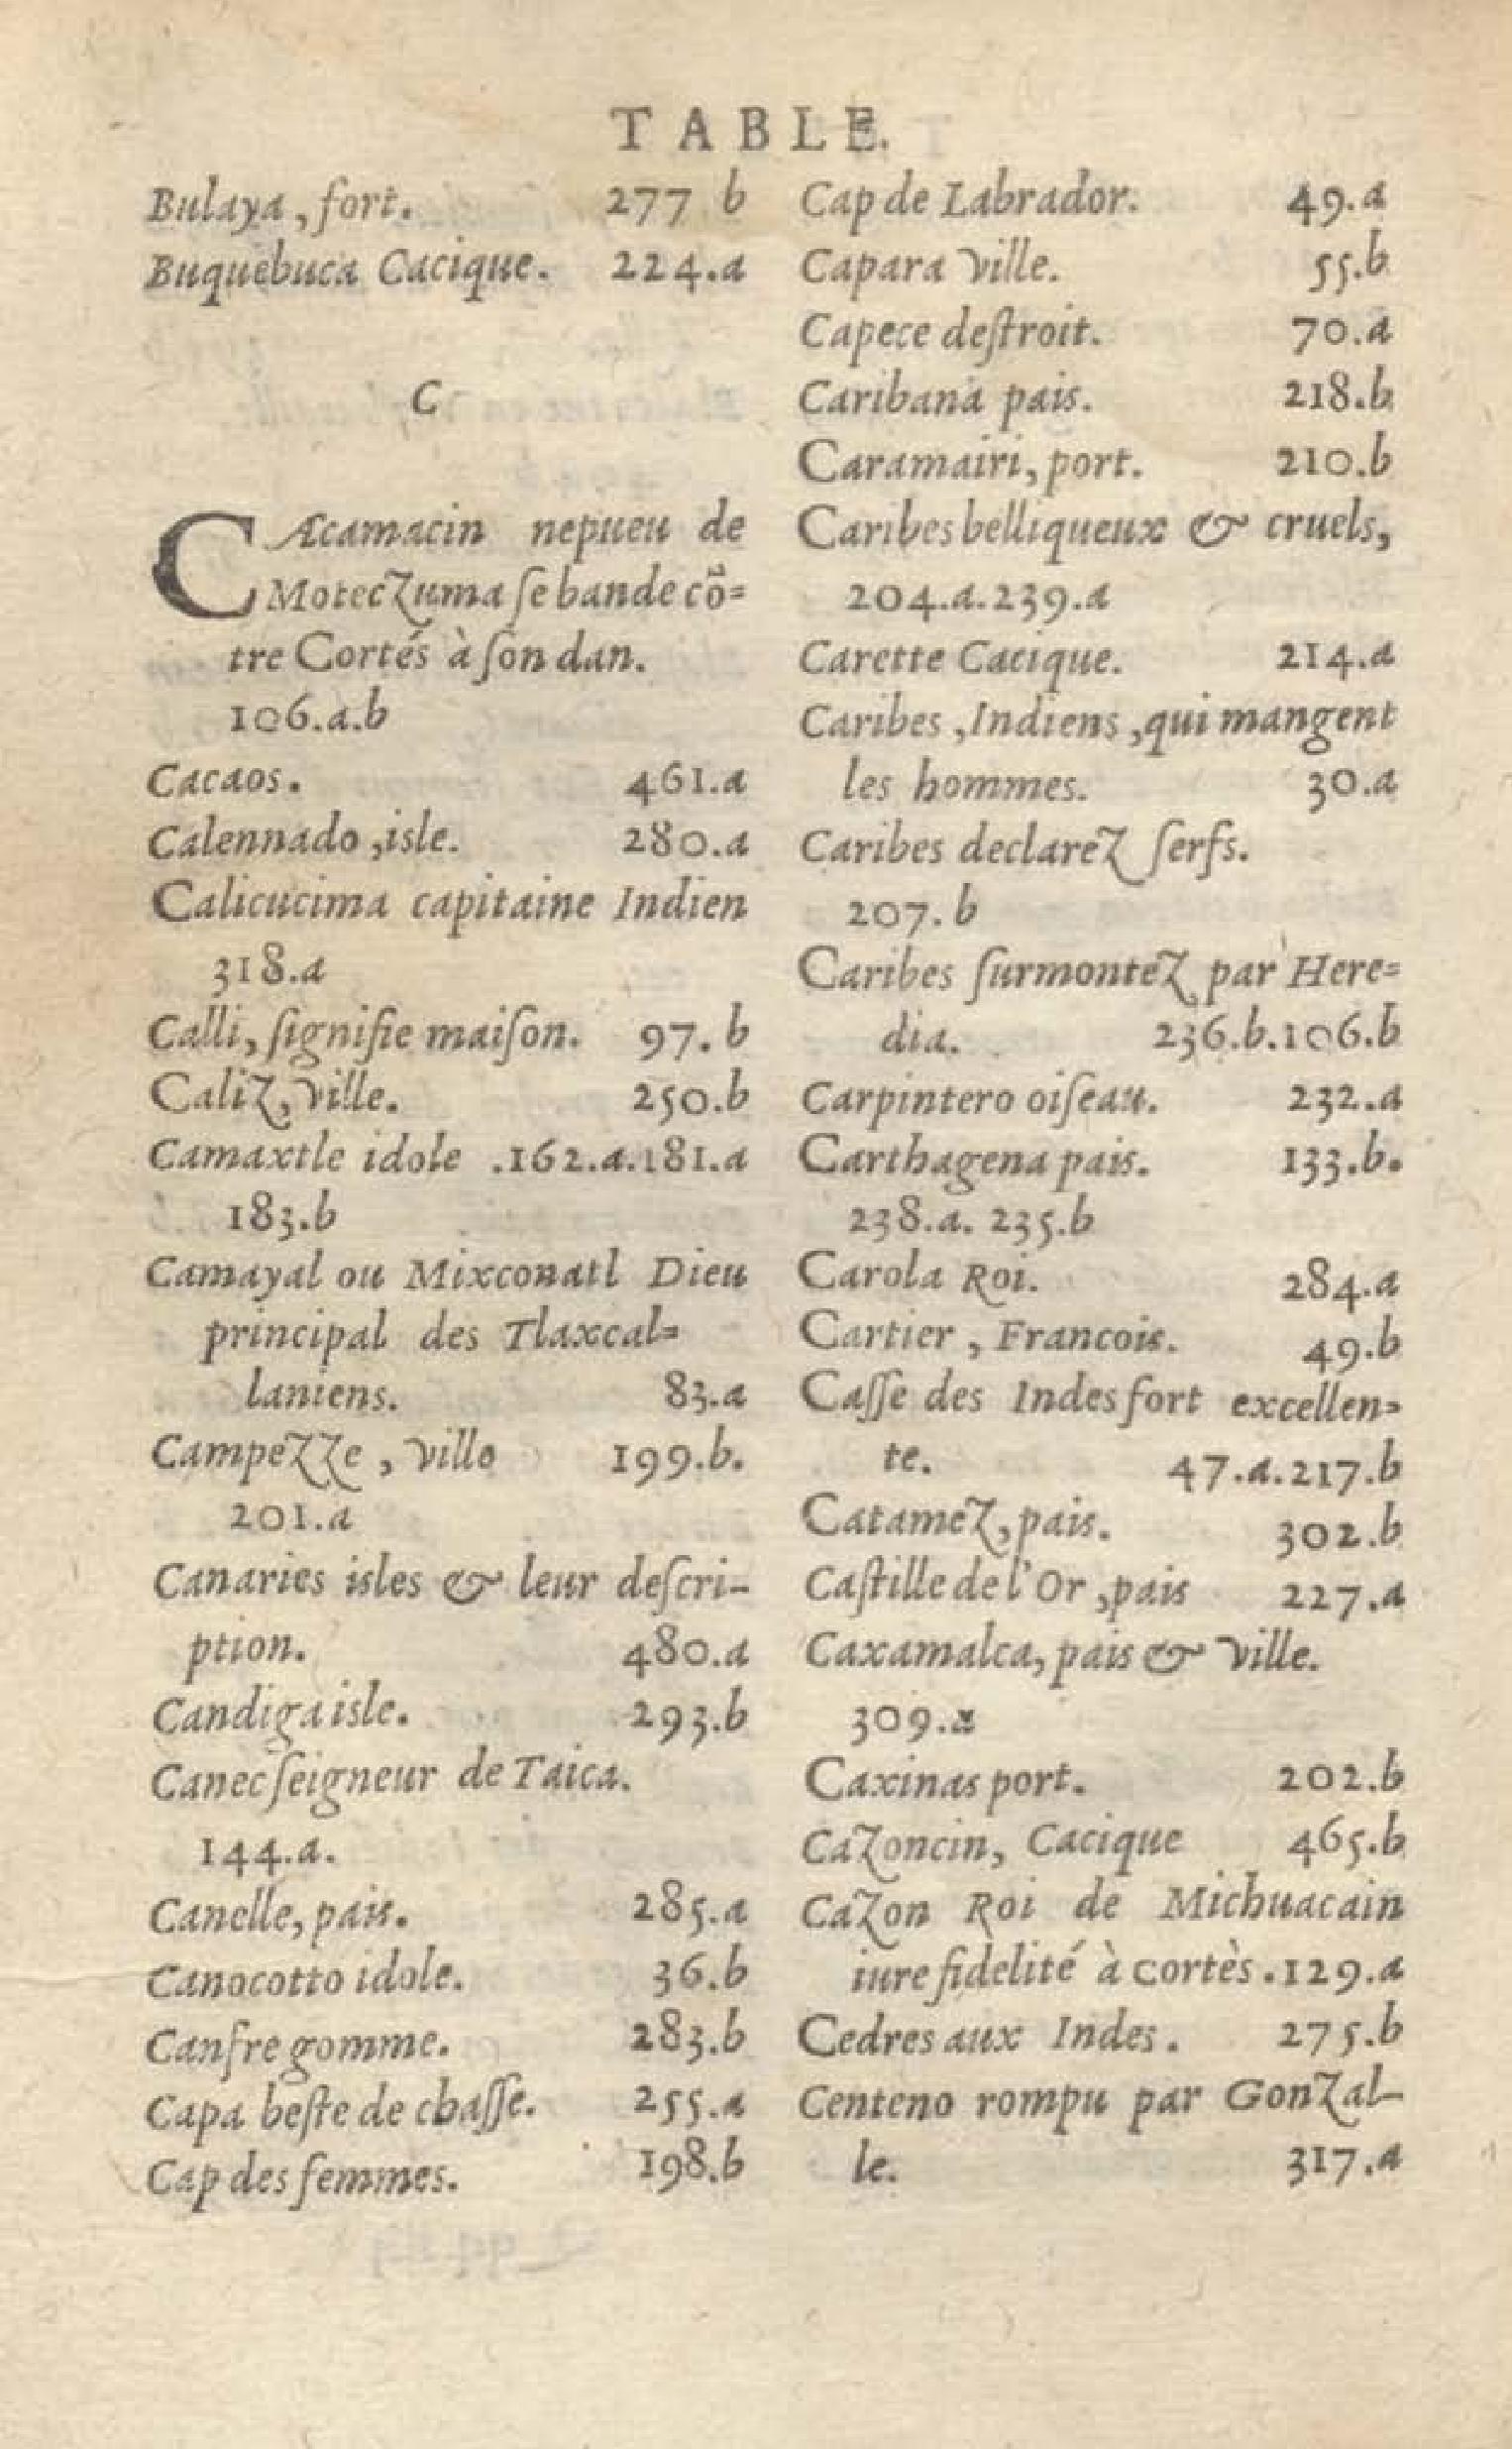 TABLE.
Bulaya, fort. 277 b
Buquebuca Cacique. 224.a
C
CÆcamacin nepueu de
Moteczuma ſe bande cõ=
tre Cortés à ſon dan.
106.a.b
Cacaos. 461.a
Calennado, isle. 280.a
Calicucima capitaine Indien
318.a
Calli, ſignifie maiſon. 97.b
Caliz, ville. 250.b
Camaxtle idole .162.a.181.a
183.b
Camayal ou Mixconatl Dieu
principal des Tlaxcal=
laniens. 83.a
Campezze, ville 199.b.
201.a
Canaries isles & leur deſcri-
ption. 480.a
Candiga isle. 293.b
Canec ſeigneur de Taica.
144.a.
Canelle, pais. 285.a
Canocotto idole. 36.b
Canfre gomme. 283.b
Capa beſte de chaſſe. 255.a
Cap des femmes. 198.b
Cap de Labrador. 49.a
Capara ville. 55.b
Capece deſtroit. 70.a
Caribana pais. 218.b
Caramairi, port. 210.b
Caribes belliqueux & cruels,
204.a.239.a
Carette Cacique. 214.a
Caribes, Indiens, qui mangent
les hommes. 30.a
Caribes declarez ſerfs.
207.b
Caribes ſurmontez par Here=
dia. 236.b.106.b
Carpintero oiſeau. 232.a
Carthagena pais. 133.b.
238.a. 235.b
Carola Roi. 284.a
Cartier, Francois. 49.b
Caſſe des Indes fort excellen=
te. 47.a.217.b
Catamez, pais. 302.b
Caſtille de l'Or, pais 227.a
Caxamalca, pais & ville.
309.a
Caxinas port. 202.b
Cazoncin, Cacique 465.b
Cazon Roi de Michuacain
iure fidelité à Cortès.129.a
Cedres aux Indes. 275.b
Centeno rompu par Gonzal-
le. 317.a